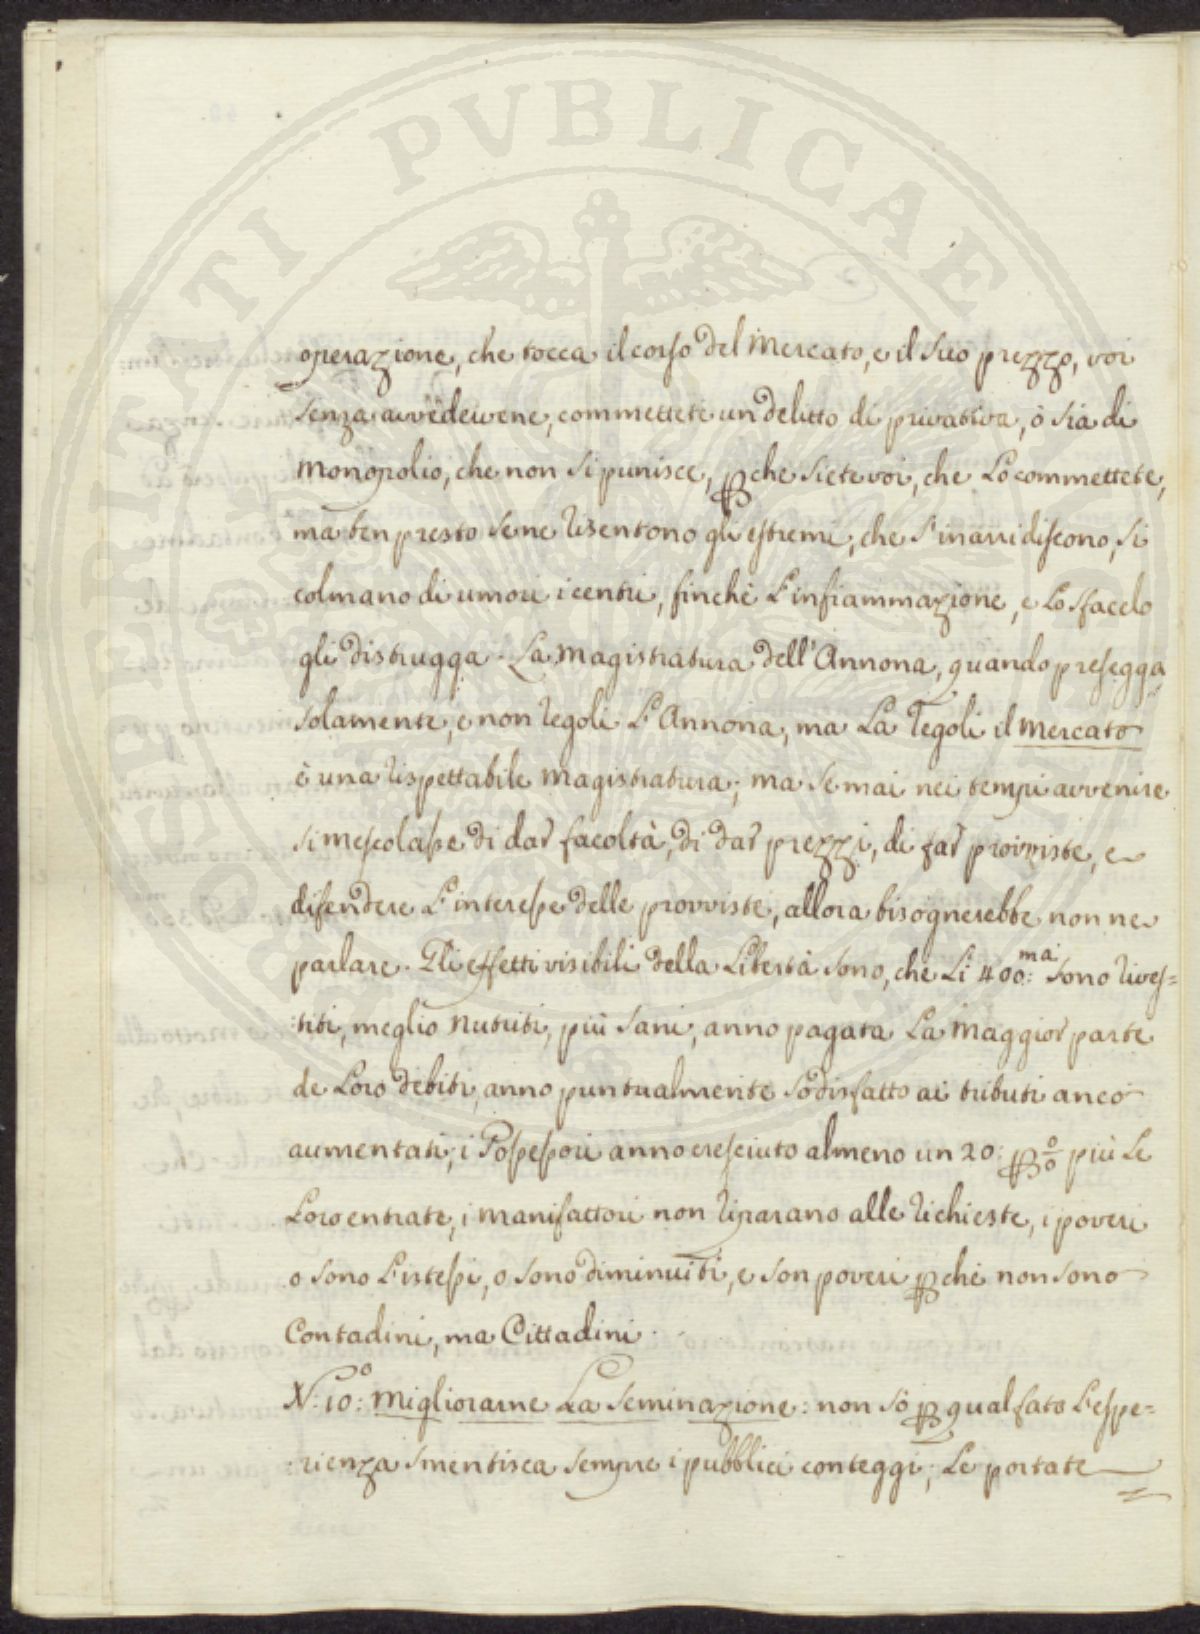 PROSPERITATI PVBLICAE
operazione, che tocca il corso del Mercato, e il suo prezzo, voi
senza avvedervene, commettete un delitto di privativa, ò sia di
Monopolio, che non si punisce, pche siete voi, che Lo commettete,
ma ben presto se ne risentono gli estremi, che s'inarridiscono, si
colmano di umori i centri, finchè L'infiammazione, e Lo sfacelo
gli distrugga. La Magistratura dell'Annona, quando presegga
solamente, e non regoli L'Annona, ma La regoli il Mercato
è una rispettabile Magistratura; ma se mai nei tempi avvenire
si mescolasse di dar facoltà, di dar prezzi, di far provviste, e
difendere L'interesse delle provviste, allora bisognerebbe non ne
parlare. Gli effetti visibili della Libertà sono, che Li 400:ma sono rives=
:titi, meglio nutriti, più sani, anno pagata La Maggior parte
de Loro debiti, anno puntualmente sodisfatto ai tributi anco
aumentati; i Possessori anno cresciuto almeno un 20: p% più Le
Loro entrate, i manifattori non riparano alle richieste, i poveri
o sono L'istessi, o sono diminuiti, e son poveri pchè non sono
Contadini, ma Cittadini.
N: 10º: Migliorarne La Seminazione: non sò p qual fato L'espe=
:rienza smentisca sempre i pubblici conteggi; Le portate